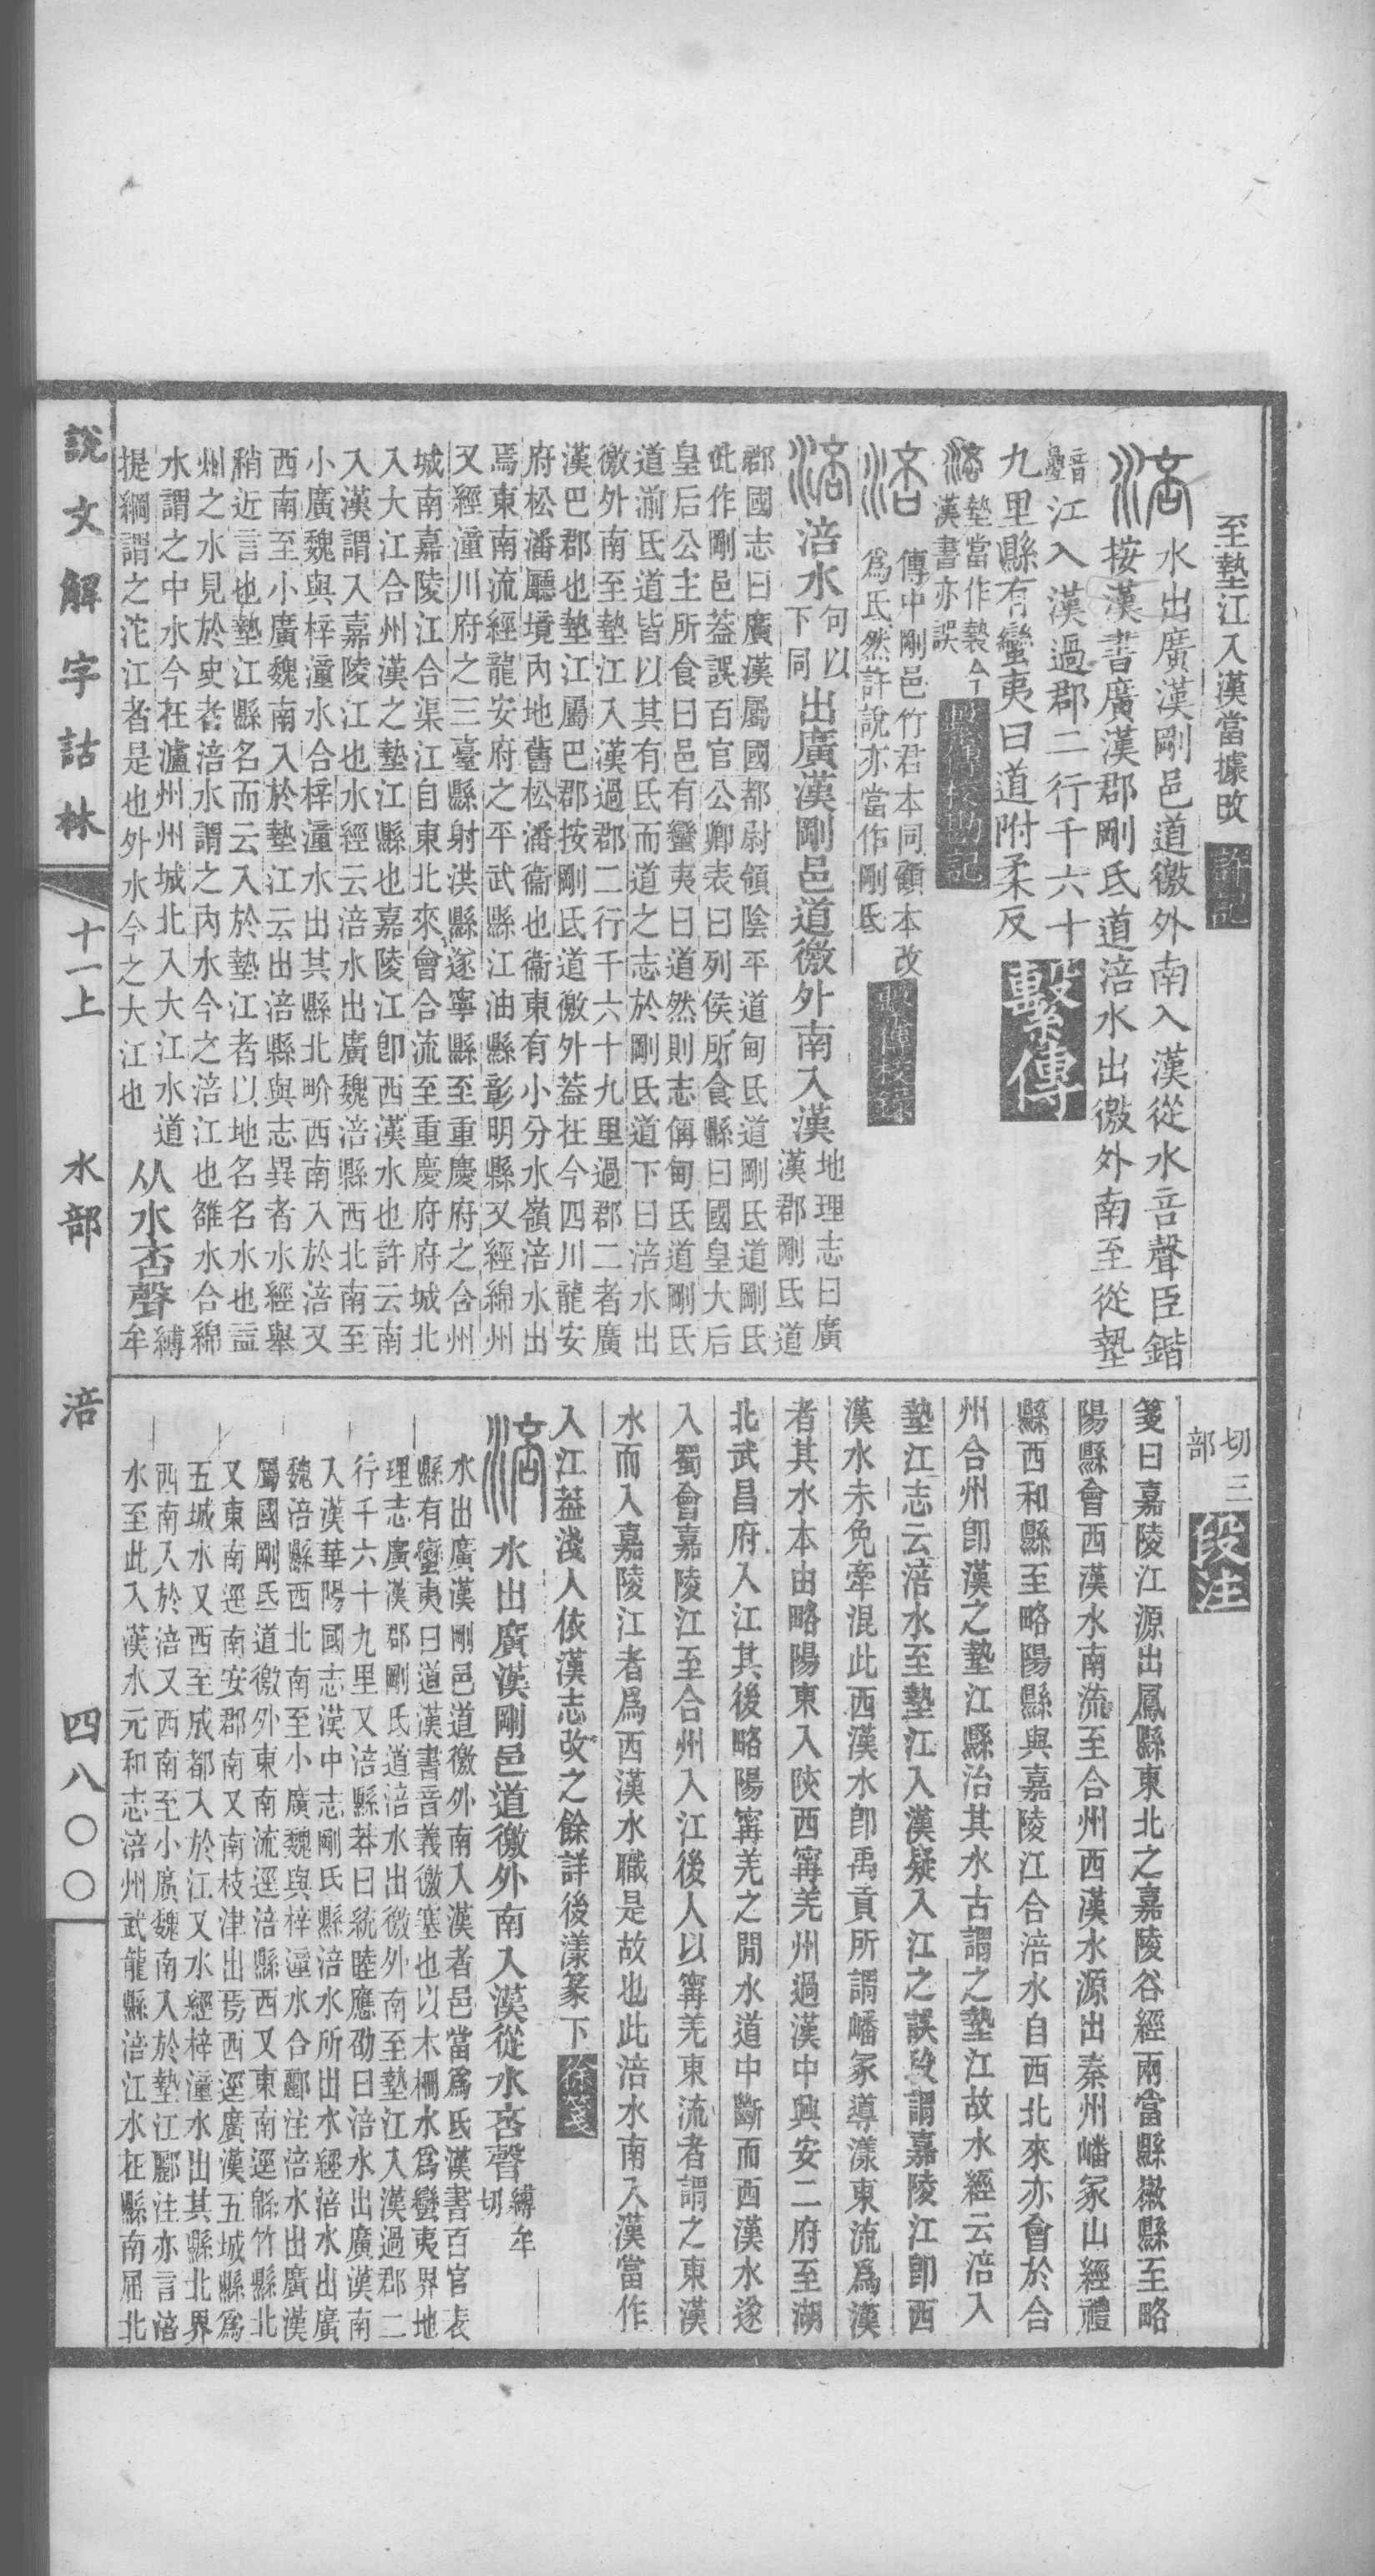 至墊江入漢當據改 許記
水出廣漢剛邑道徼外南入漢從水咅聲臣鍇
按漢書廣漢郡剛氐道涪水出徼外南至從墊
音疊江入漢過郡二行千六十
九里縣有蠻夷曰道附柔反 繫傳
墊當作墊今
漢書亦誤 繫傳校勘記
傳中剛邑竹君本同顧本改
爲氐然許說亦當作剛氐 繫傳校錄
涪水句以下同出廣漢剛邑道徼外南入漢地理志曰廣漢郡剛氐道
郡國志曰廣漢屬國都尉領陰平道甸氐道剛氐道剛氐
此作剛邑葢誤百官公卿表曰列侯所食縣曰國皇大后
皇后公主所食曰邑有蠻夷曰道然則志偁甸氐道剛氐
道湔氐道皆以其有氐而道之志於剛氐道下曰涪水出
徼外南至墊江入漢過郡二行千六十九里過郡二者廣
漢巴郡也墊江屬巴郡按剛氐道徼外葢在今四川龍安
府松潘廳境內地舊松潘衞也衞東有小分水嶺涪水出
焉東南流經龍安府之平武縣江油縣彰明縣又經綿州
又經潼川府之三臺縣射洪縣遂寧縣至重慶府之合州
城南嘉陵江合渠江自東北來會合流至重慶府府城北
入大江合州漢之墊江縣也嘉陵江卽西漢水也許云南
入漢謂入嘉陵江也水經云涪水出廣魏涪縣西北南至
小廣魏與梓潼水合梓潼水出其縣北畍西南入於涪又
西南至小廣魏南入於墊江云出涪縣與志異者水經舉
稍近言也墊江縣名而云入於墊江者以地名名水也益
州之水見於史者涪水謂之內水今之涪江也雒水合綿
水謂之中水今在瀘州州城北入大江水道
提綱謂之沱江者是也外水今之大江也 从水咅聲縛牟
切三
部 段注
箋曰嘉陵江源出鳳縣東北之嘉陵谷經兩當縣徽縣至略
陽縣會西漢水南流至合州西漢水源出秦州嶓冢山經禮
縣西和縣至略陽縣與嘉陵江合涪水自西北來亦會於合
州合州卽漢之墊江縣治其水古謂之墊江故水經云涪入
墊江志云涪水至墊江入漢疑入江之誤段謂嘉陵江卽西
漢水未免牽混此西漢水卽禹貢所謂嶓冢導漾東流爲漢
者其水本由略陽東入陝西甯羌州過漢中興安二府至湖
北武昌府入江其後略陽甯羌之閒水道中斷而西漢水遂
入蜀會嘉陵江至合州入江後人以甯羌東流者謂之東漢
水而入嘉陵江者爲西漢水職是故也此涪水南入漢當作
入江葢淺人依漢志改之餘詳後漾篆下 徐箋
水出廣漢剛邑道徼外南入漢從水咅聲縛牟切
水出廣漢剛邑道徼外南入漢者邑當爲氐漢書百官表
縣有蠻夷曰道漢書音義徼塞也以木柵水爲蠻夷界地
理志廣漢郡剛氐道涪水出徼外南至墊江入漢過郡二
行千六十九里又涪縣莽曰統睦應劭曰涪水出廣漢南
入漢華陽國志漢中志剛氐縣涪水所出水經涪水出廣
魏涪縣西北南至小廣魏與梓潼水合酈注涪水出廣漢
屬國剛氐道徼外東南流逕涪縣西又東南逕緜竹縣北
又東南逕南安郡南又南枝津出焉西逕廣漢五城縣爲
五城水又西至成都入於江又水經梓潼水出其縣北界
西南入於涪又西南至小廣魏南入於墊江酈注亦言涪
水至此入漢水元和志涪州武龍縣涪江水在縣南屈北
說文解字詁林 十一上 水部 涪 四八〇〇